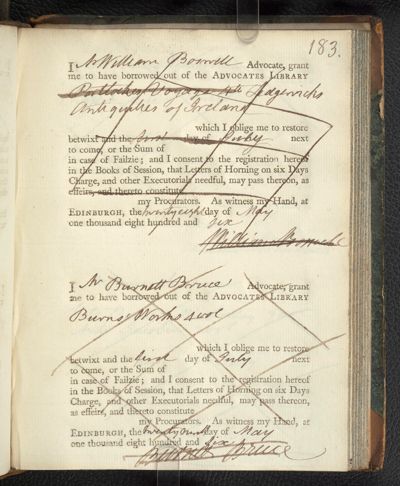 183.
I Mr William Boswell Advocate, grant
me to have borrowed out of the ADVOCATES LIBRARY
Voyage 4to Ledgwichs
Antiquities of Ireland
which I oblige me to restore
betwixt and the first day of July next
to come, or the Sum of
in case of Failzie; and I consent to the registration hereof
in the Books of Session, that Letters of Horning on six Days
Charge, and other Executorials needful, may pass thereon, as
effeirs, and thereto constitute
my Procurators. As witness my Hand, at
EDINBURGH, the twenty eight day of May
one thousand eight hundred and six
William Boswell
I Mr Burnett Bruce Advocate, grant
me to have borrowed out of the ADVOCATES LIBRARY
Burns Works 4 vol
which I oblige me to restore
betwixt and the first day of July next
to come, or the Sum of
in case of Failzie; and I consent to the registration hereof
in the Books of Session, that Letters of Horning on six Days
Charge, and other Executorials needful, may pass thereon,
as effeirs, and thereto constitute
my Procurators. As witness my Hand, at
EDINBURGH, the day of May
one thousand eight hundred and six
Burnett Bruce